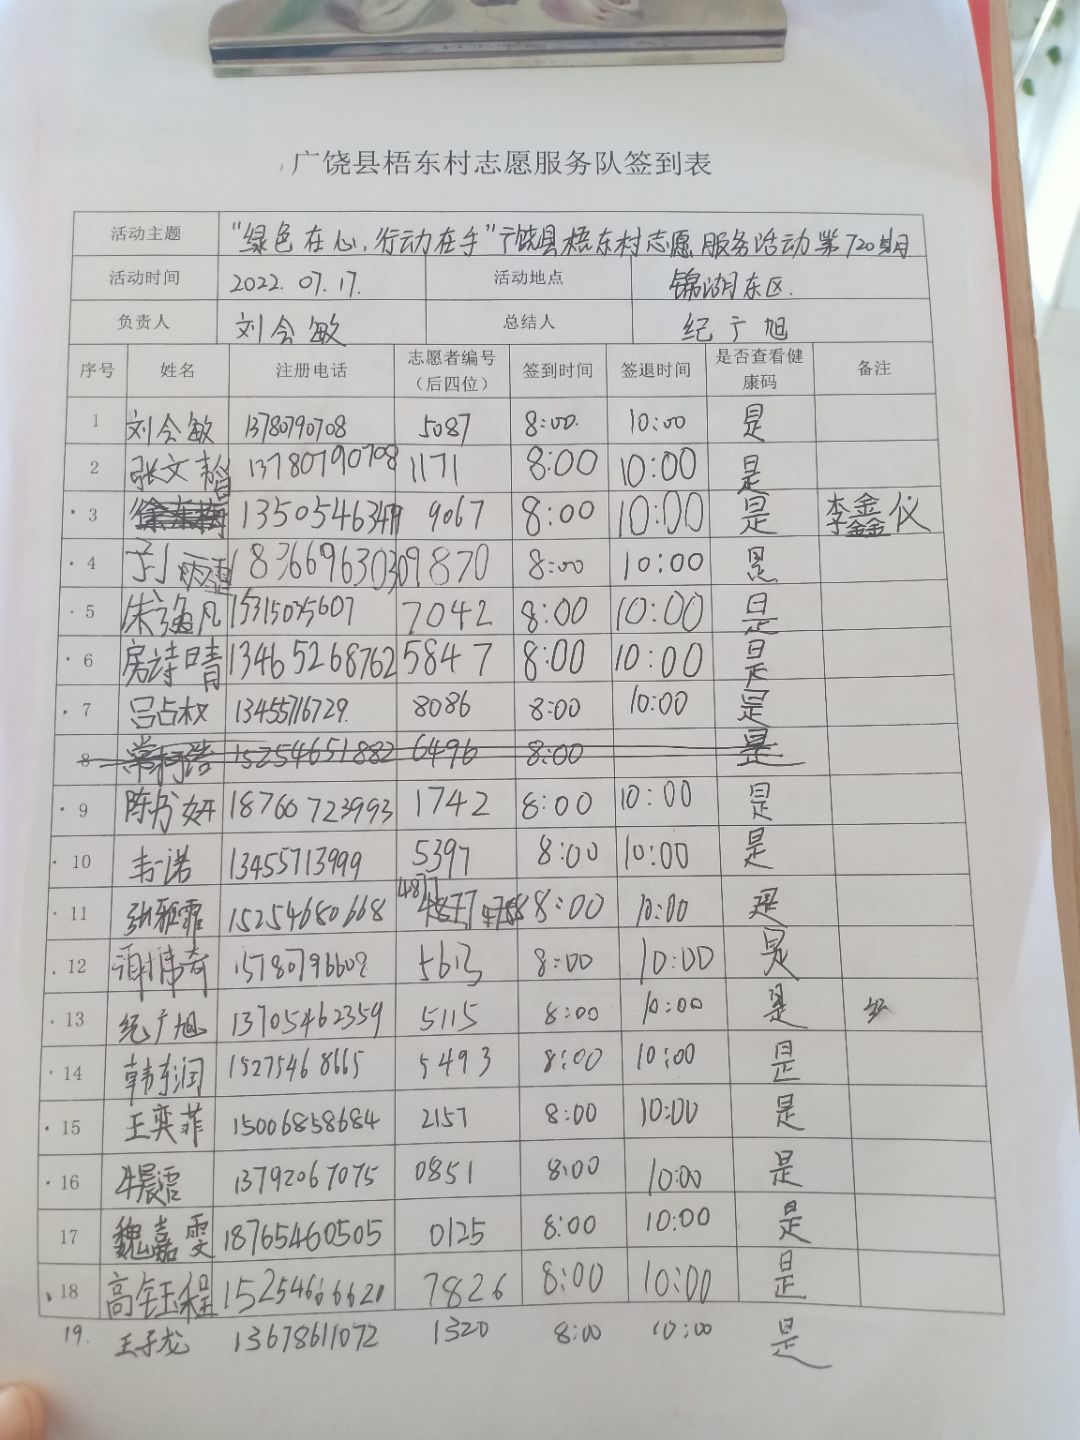 广饶县梧东村志愿服务队签到表
活动主题 "绿色在心,行动在手"广饶县梧东村志愿服务活动第720期
活动时间 2022.07.17. 活动地点 锦湖东区.
负责人 刘会敏 总结人 纪广旭
序号 姓名 注册电话 志愿者编号（后四位） 签到时间 签退时间 是否查看健康码 备注
1 刘会敏 13780790708 5087 8:00 10:00 是
2 张文韬 13780790708 1171 8:00 10:00 是
3 徐东梅 13505463479 9067 8:00 10:00 是 李鑫仪
4 18366963030 9870 8:00 10:00 是
5 朱逸凡 15315035607 7042 8:00 10:00 是
6 房诗晴 13465268762 5847 8:00 10:00 是
7 吕占权 13455716729. 8086 8:00 10:00 是
8 常柯浩 15254651882 6496 8:00 是
9 陈妤妍 18760723993 1742 8:00 10:00 是
10 韦一诺 13455713999 5397 8:00 10:00 是
11 张雅霏 15254680668 4877 8:00 10:00 是
12 谢博奇 15780796602 5613 8:00 10:00 是
13 纪广旭 13705462359 5115 8:00 10:00 是
14 韩东润 15275468665 5493 8:00 10:00 是
15 王奕菲 15006858684 2157 8:00 10:00 是
16 13792067075 0851 8:00 10:00 是
17 魏嘉雯 18765460505 0125 8:00 10:00 是
18 高钰程 15254666620 7826 8:00 10:00 是
19. 王子龙 13678611072 1320 8:00 10:00 是